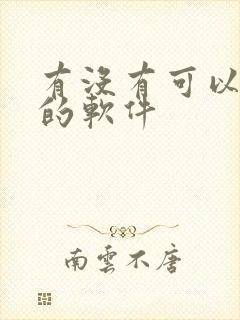 有没有可以
的軟件
南雲不唐